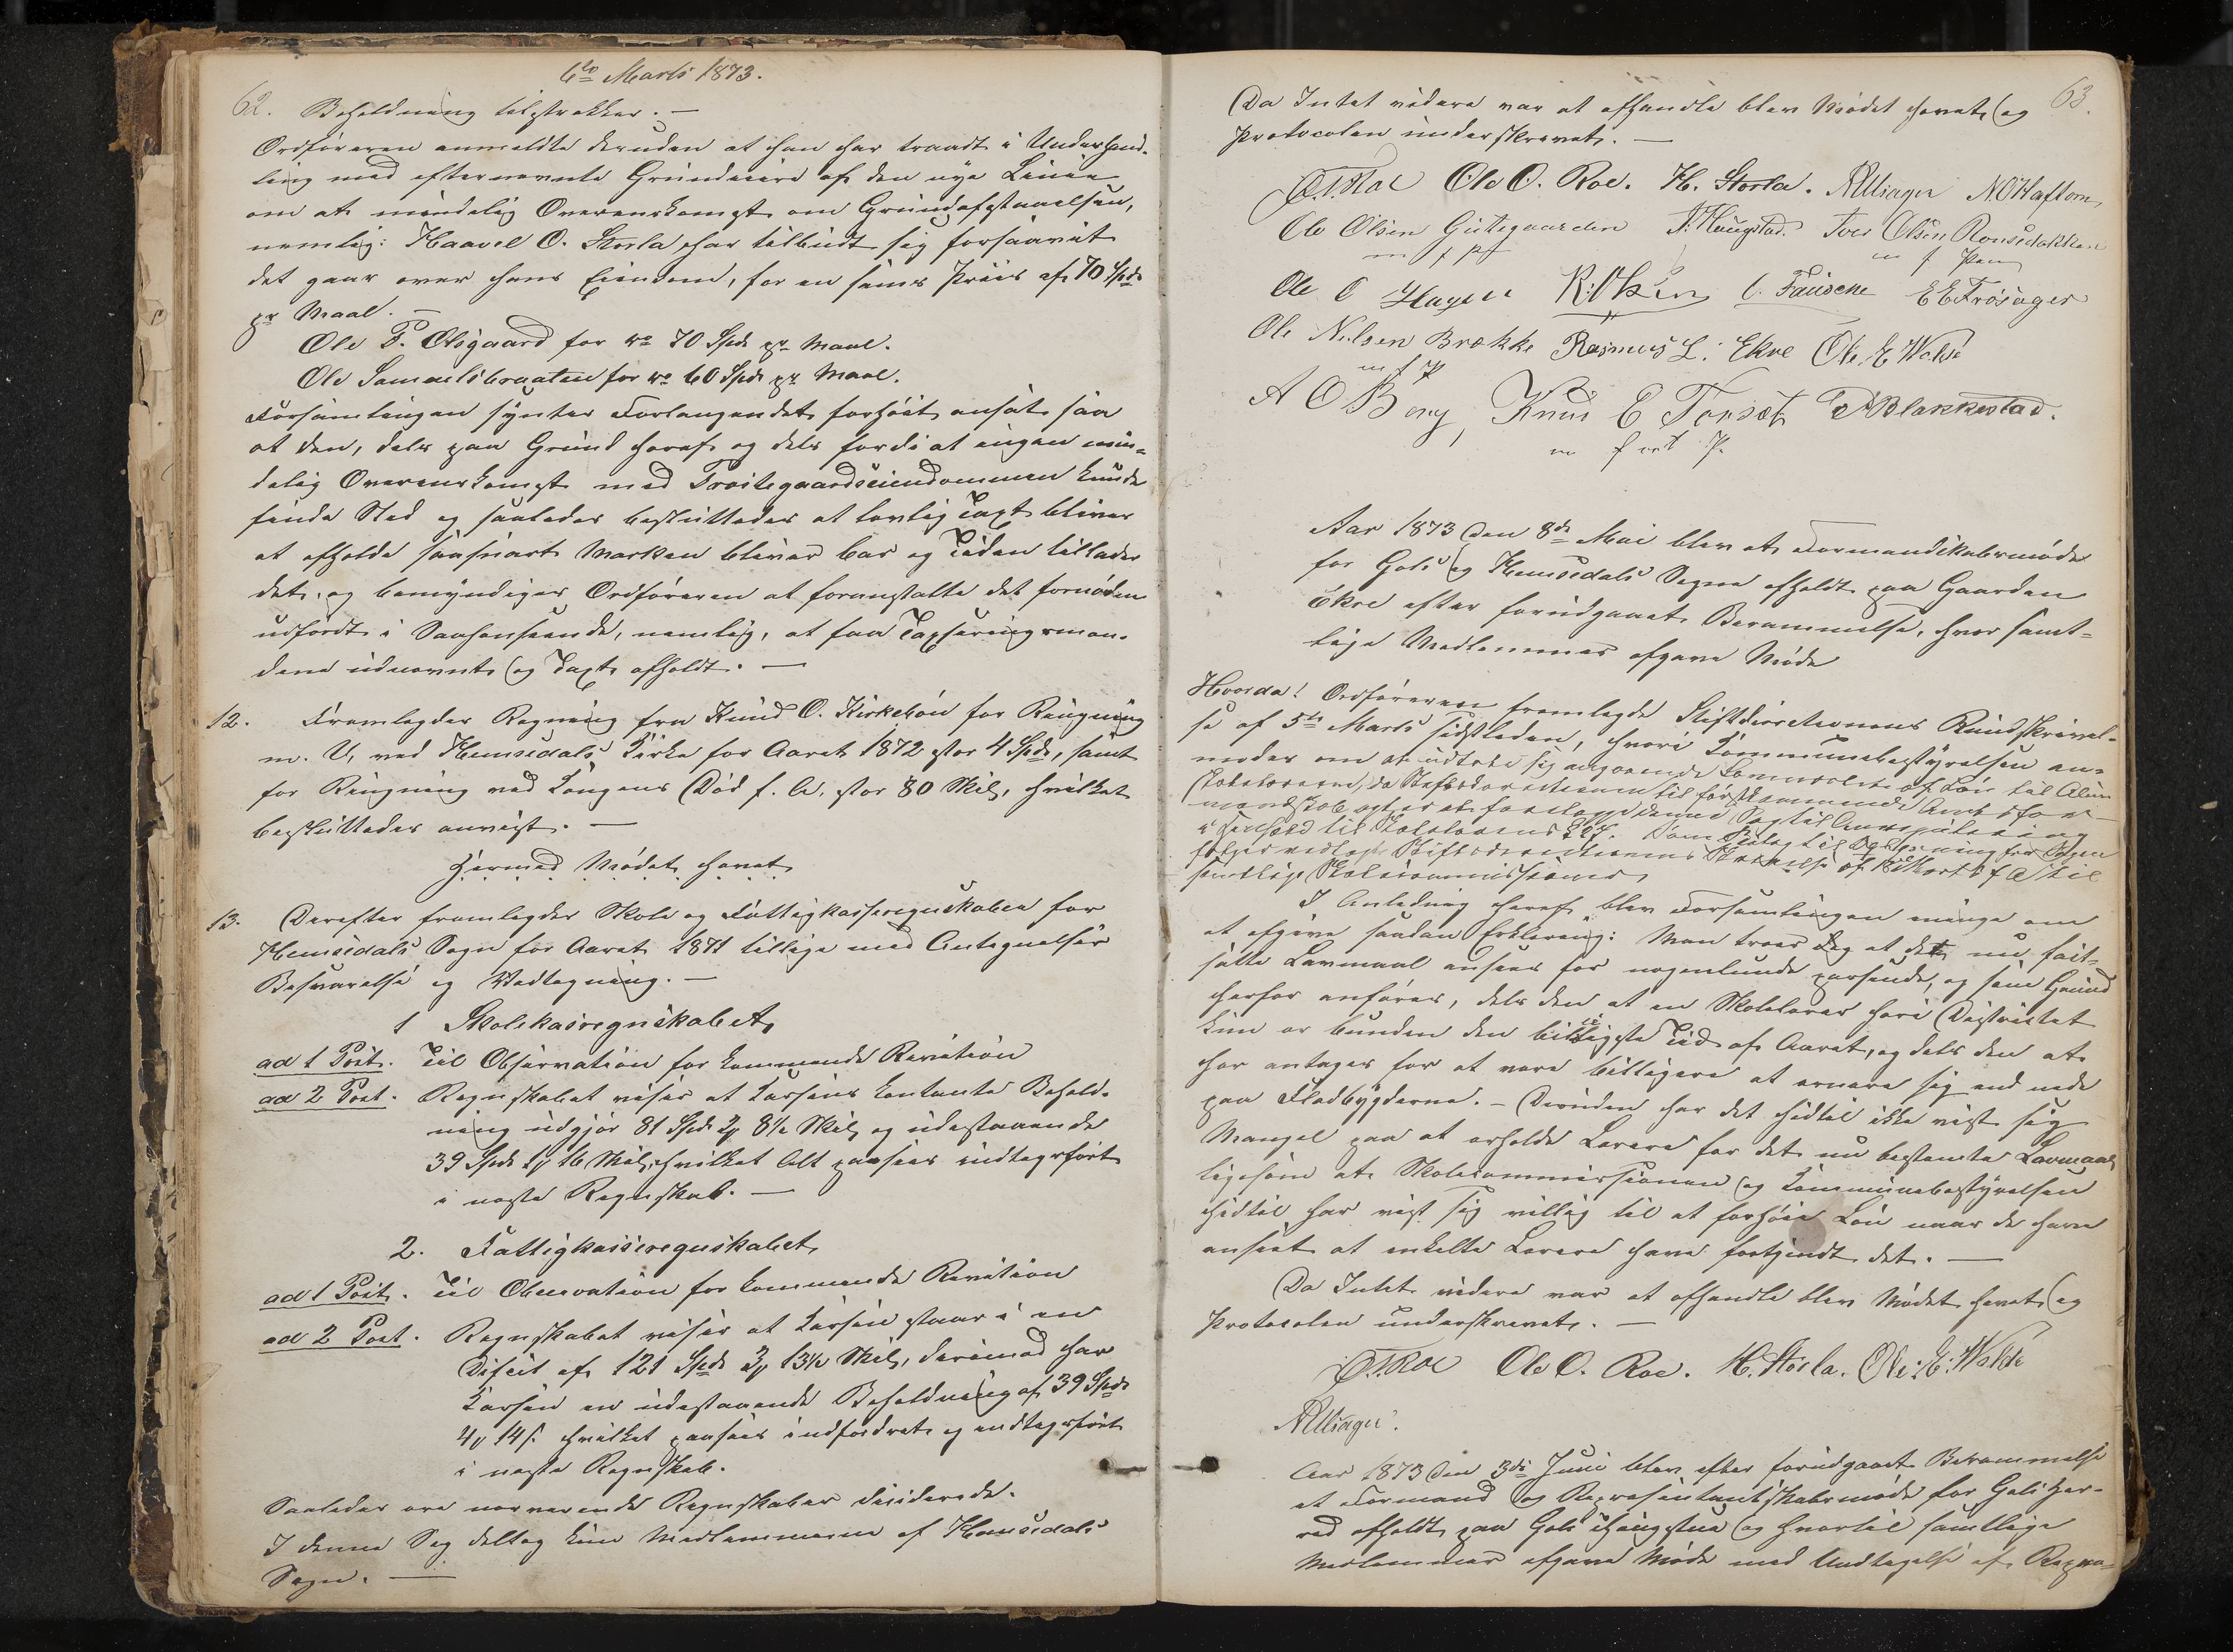 6te Marts 1873.
62. Beholdning tilstrækker. —
Ordføreren anmeldte desuden at han har traadt i Underhand-
ling med efternævnte Grundeiere af den nye Linie
om at mindelig Overenskomst om Grundafstaaelsen,
nemlig: Haavel O. Storla har tilbudt sig forsaavidt
det gaar over hans Eiendom, for en Sum Priis af 70 Spd
pr Maal. —
Ole P. Olsgaard for 70 Spd pr Maal.
Ole Samuelsbraaten for 60 Spd pr Maal.
Forsamlingen syntes Forlangendet forhøit ansat saa
at den, dels paa Grund heraf og dels fordi at ingen min-
delig Overenskomst med Trøitegaardseiendommen kunde
finde Sted og saaledes besluttedes at lovlig Taxt bliver
at afholde saasnart Marken bliver bar og Tiden tillader
det, og bemyndiges Ordføreren at foranstalte det fornødne
udført i Saahenseende, nemlig, at faa Taxeringsmæn-
dene udnævnt og Taxt afholdt. —
12. Fremlagdes Regning fra Knud O. Kirkebøn for Ringning
m. V. ved Hemsedals Kirke for Aaret 1872 stor 4 Spd, samt
for Ringning ved Kongens Død f. A. stor 80 Skil, hvilket
besluttedes anvist. —
Hermed Mødet hævet
13. Derefter fremlagdes Skole og Fattigkasseregnskaber for
Hemsedals Sogn for Aaret 1871 tillige med Antegnelser
Besvarelse og Vedtegning. —
1 Skolekasregnskabet,
ad 1 Post. Til Observation for kommende Revision
ad 2 Post. Regnskabet viser at Kassens kontante Behold-
ning udgjør 81 Spd 2 ₰ 8½ Skil og udestaaende
39 Spd 1 ₰ 16 Skil, hvilket Alt paasees indtægtsført
i næste Regnskab. —
2. Fattigkasseregnskabet,
ad 1 Post. Til Observation for kommende Revision
ad 2 Post. Regnskabet viser at Kassen staar i en
Dificit af 121 Spd 3 ₰ 13½ Skil, derimod har
Kassen en udestaaende Beholdning af 39 Spd
4 ₰ 14 s. hvilket paasees indfordret og indtægtsført
i næste Regnskab.
Saaledes ere nærværende Regnskaber deciderede.
I denne Sag deltog kun Medlemmerne af Hemsedals
Sogn. —
63.
Da Intet videre var at afhandle blev Mødet hævet og
Protocolen underskrevet. —
O.T. Roe Ole O. Roe. H. Storla. N.O. Haftorn,
Ole Olsen Guttegaarden T. Haugstad. Iver Olsen
m f p
Ole O Hagen K. Olsen E E Trøsager
Ole Nilsen Brække Rasmus L. Ekre Ole E Wolde
m f p
A O Berg, Knud E Torset A Blakkestad.
Aar 1873 den 8de Mai blev et Formandskabsmøde
for Gols og Hemsedals Sogne afholdt paa Gaarden
Ekre efter forudgaaet Berammelse, hvor samt-
lige Medlemmer afgave Møde
Hvorda! Ordføreren fremlagde Stiftdirectionens Rundskrivel-
se af 5te Marts sidstleden, hvori Kommunebestyrelsen an-
modes om at udtale sig angaaende Lønnen til Almu
Skolelærerne, da Stiftsdirectionen til førstkommende Amtsfor-
mandskab agter at forelægge denne Sag til
i Henhold til Skolelovens § 27. Som Bilag til Oplysning fra
følger vedlagt Stiftsdirectionens Skrivelse af Marts f A til
samtlige Skolecommissioner
I Anledning heraf blev Forsamlingen enige om
at afgive saadan Erklæring: Man troer dog at det nu fast-
satte Lønmaal ansees for nogenlunde passende, og som Grund
herfor anføres, dels den at en Skolelærer heri Districtet
kun er bunden den billigste Tid af Aaret, og dels den at
her antages for at være billigere at ernære sig end nede
paa Fladbygderne. — Desuden har det hidtil ikke vist sig
Mangel paa at erholde Lærere for det nu bestemte Lønmaal,
ligesom at Skolecommissionen og Kommunebestyrelsen
hidtil har vist sig villig til at forhøie Løn naar de have
anseet at enkelte Lærere have fortjendt det. —
Da Intet videre var at afhandle blev Mødet hævet og
Protocolen underskrevet. —
O.T. Roe Ole O. Roe. H. Storla. Ole. E. Wolde
Aar 1873 den 3die Juni blev efter forudgaaet Berammelse
et Formand og Repræsentantskabsmøde for Gols Her-
red afholdt paa Gols Thingstue og hvortil samtlige
Medlemmer afgave Møde med Undtagelse af Repræ-